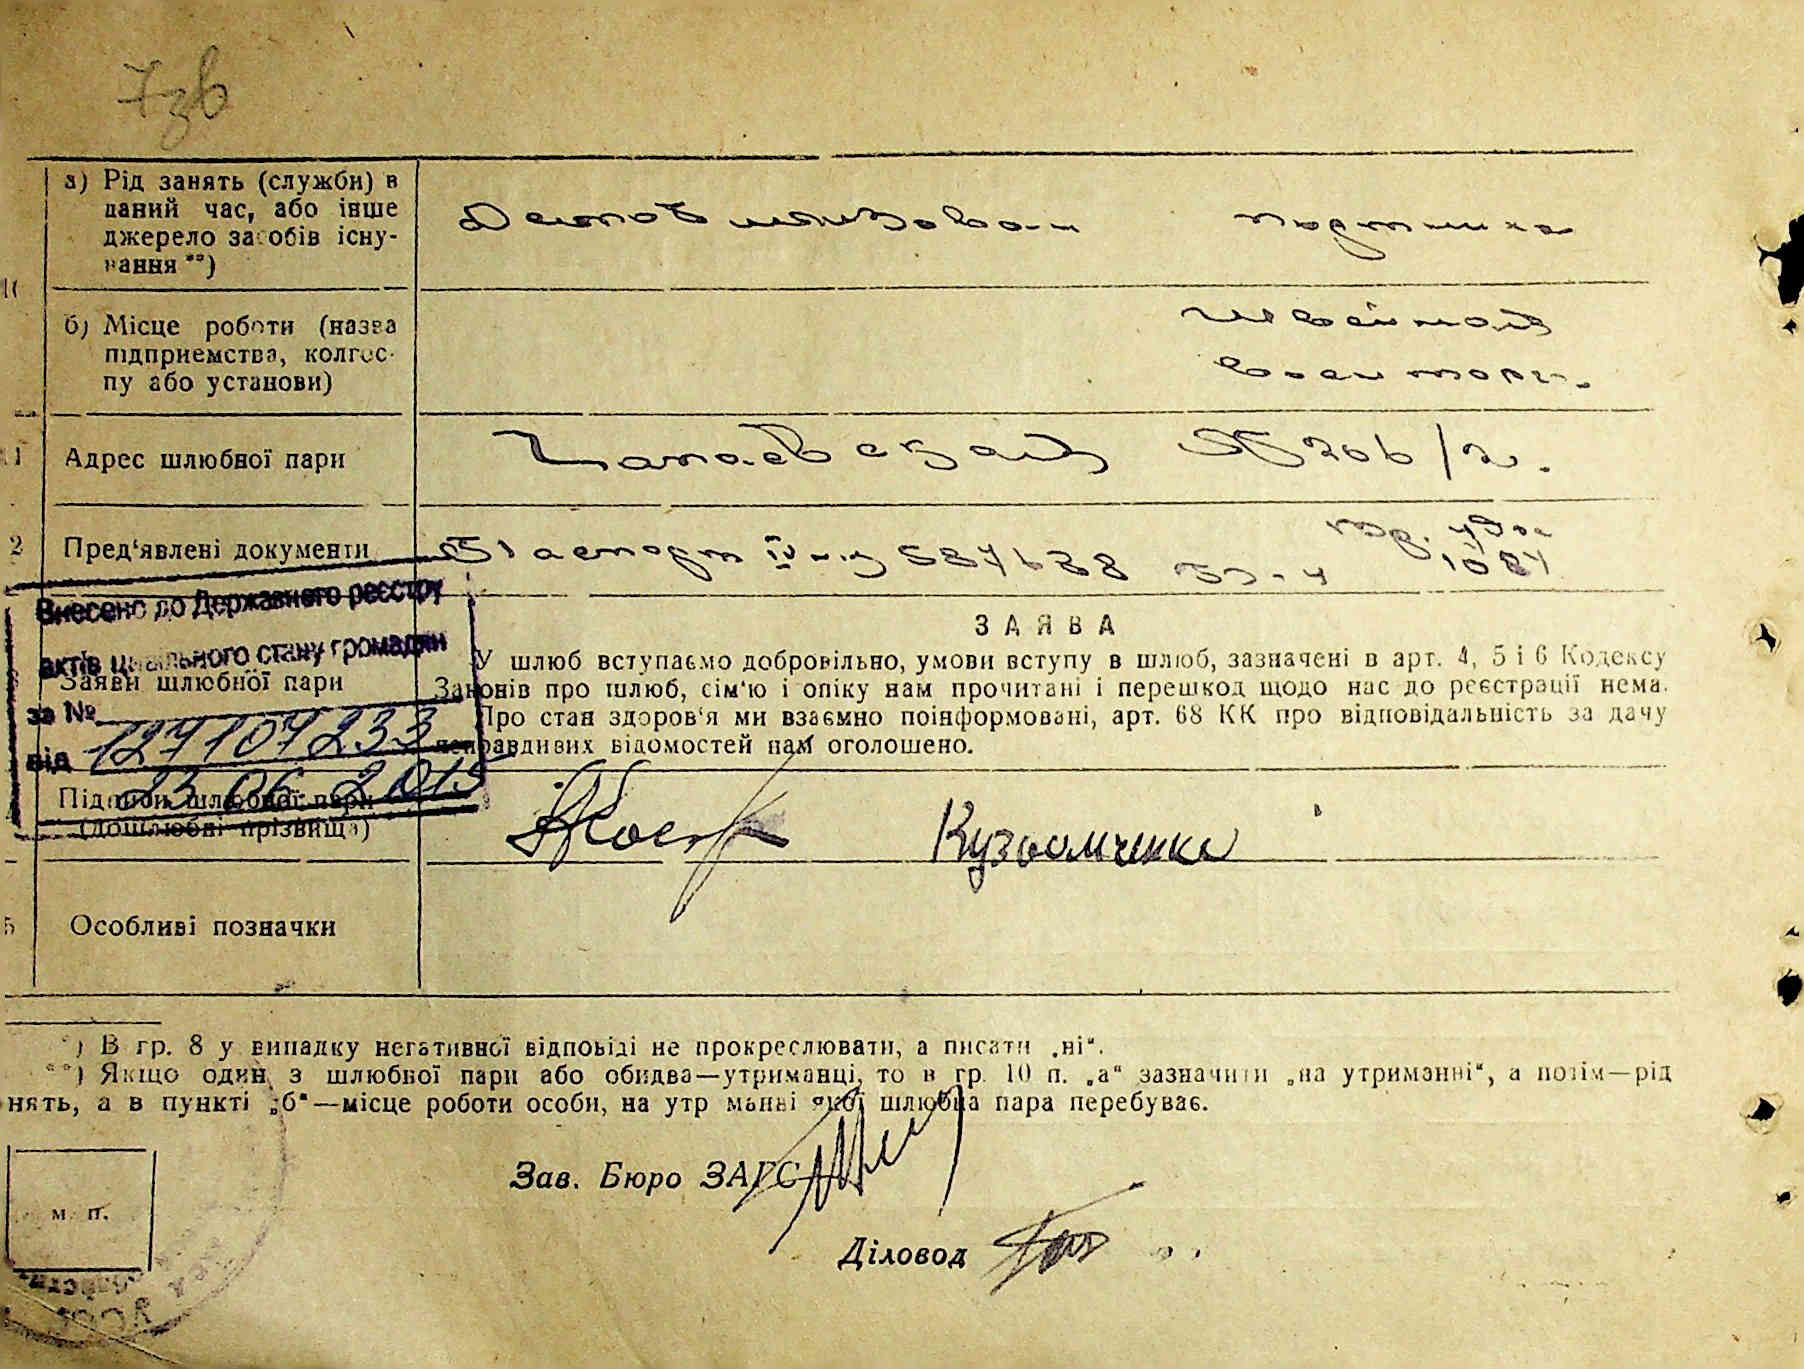 7зв
а) Рід занять (служби) в
даний час, або інше
джерело засобів існу-
вання **)
Демобилизован
портниха
10
б) Місце роботи (назва
підприемства, колгос-
пу або установи)
Швейной
военторг.
11
Адрес шлюбної пари
Чапаевская 206/2.
12
Пред‘явлені документи
Паспорт IV 587638
Внесено до Державного реєстру
актів цивільного стану громадян
за №
127107233
від
23 06 2015
Заяви шлюбної пари
ЗАЯВА
У шлюб вступаємо добровільно, умови вступу в шлюб, зазначені в арт. 4, 5 і 6 Кодексу
Законів про шлюб, сім‘ю і опіку нам прочитані і перешкод щодо нас до реєстрації нема.
Про стан здоров‘я ми взаємно поінформовані, арт. 68 КК про відповідальність за дачу
неправдивих відомостей нам оголошено.
Підписи шлюбної пари
(дошлюбні прізвища)
Кузьомченко
5
Особливі позначки
*) В гр. 8 у випадку негативної відповіді не прокреслювати, а писати „ні“.
**) Якщо один з шлюбної пари або обидва—утриманці, то в гр. 10 п. „а“ зазначити „на утриманні“, а потім—рід
нять, а в пункті „б“—місце роботи особи, на утриманні якої шлюбна пара перебуває.
Зав. Бюро ЗАГС
м. п.
Діловод